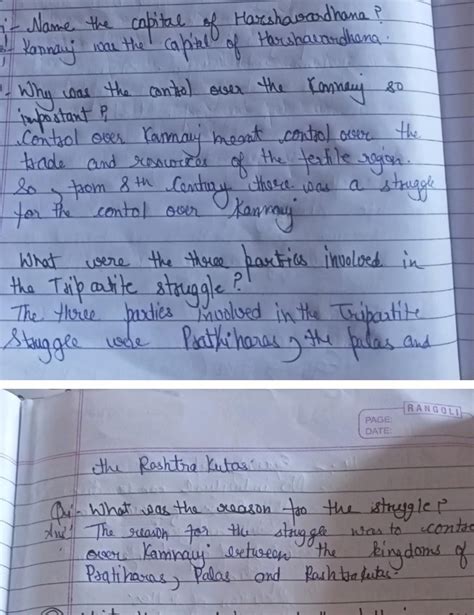 i - Name the capital of Harshavardhana ?
Kannauj was the capital of Harshavardhana.
- Why was the control over the Kannauj so
important ?
Control over Kannauj meant control over the
trade and resources of the fertile region.
So, from 8th Century there was a struggle
for the contol over Kannauj
What were the three parties involved in
the Tripartite struggle ?
The three parties involved in the Tripartite
Struggle were Prathiharas, the palas and
RANGOLI
PAGE:
DATE:
the Rashtra Kutas.
Qu:- What was the reason for the struggle ?
Ans: The reason for the struggle was to contor
over Kannauj between the kingdoms of
Pratiharas, Palas and Rashtrakutas.